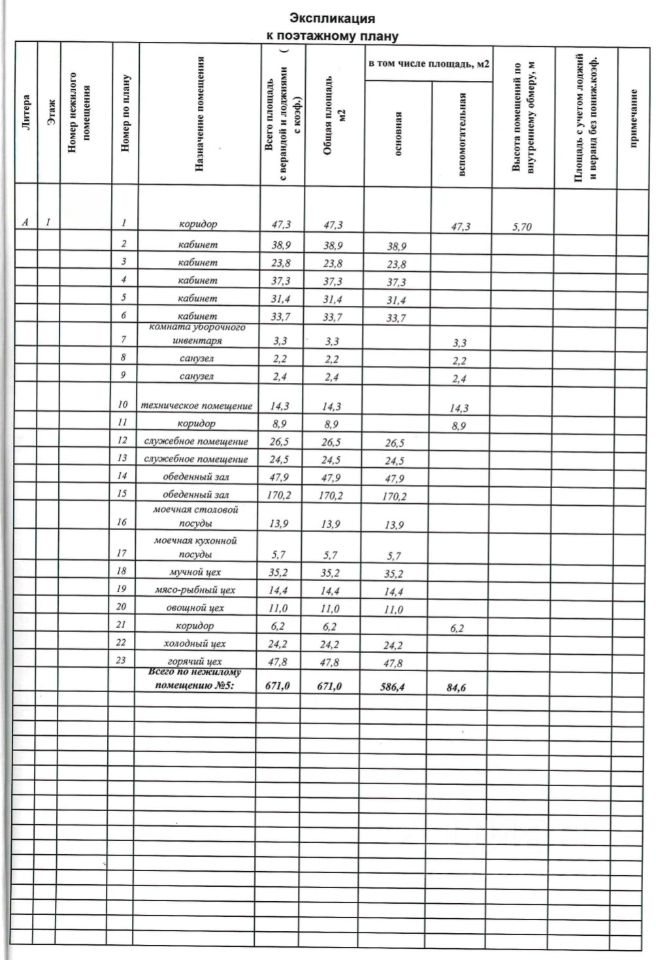 Экспликация
к поэтажному плану
Литера
Этаж
Номер нежилого
помещения
Номер по плану
Назначение помещения
Всего площадь (
с верандой и лоджиями
с коэф.)
Общая площадь
м2
в том числе площадь, м2
основная
вспомогательная
Высота помещений по
внутреннему обмеру, м
Площадь с учетом лоджий
и веранд без пониж.коэф.
примечание
А 1 1 коридор 47,3 47,3 47,3 5,70
2 кабинет 38,9 38,9 38,9
3 кабинет 23,8 23,8 23,8
4 кабинет 37,3 37,3 37,3
5 кабинет 31,4 31,4 31,4
6 кабинет 33,7 33,7 33,7
комната уборочного
7 инвентаря 3,3 3,3 3,3
8 санузел 2,2 2,2 2,2
9 санузел 2,4 2,4 2,4
10 техническое помещение 14,3 14,3 14,3
11 коридор 8,9 8,9 8,9
12 служебное помещение 26,5 26,5 26,5
13 служебное помещение 24,5 24,5 24,5
14 обеденный зал 47,9 47,9 47,9
15 обеденный зал 170,2 170,2 170,2
моечная столовой
16 посуды 13,9 13,9 13,9
моечная кухонной
17 посуды 5,7 5,7 5,7
18 мучной цех 35,2 35,2 35,2
19 мясо-рыбный цех 14,4 14,4 14,4
20 овощной цех 11,0 11,0 11,0
21 коридор 6,2 6,2 6,2
22 холодный цех 24,2 24,2 24,2
23 горячий цех 47,8 47,8 47,8
Всего по нежилому
помещению №5: 671,0 671,0 586,4 84,6